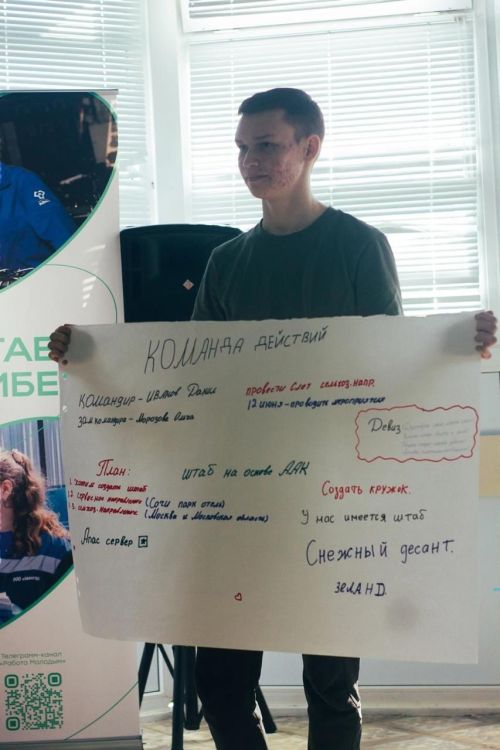 КОМАНДА ДЕЙСТВИЙ
Командир - Иванов Данил
Зам.командира - Морозова Ольга
провести Слёт сельхоз.напр.
12 июня - проводить мероприятия
Девиз
План:
штаб на основе ААК
1. Хотим создать штаб
1.2 Сервисное направление (Сочи парк отель)
1.3 Сельхоз.направление (Москва и Московская область)
Апас сервер
Создать кружок.
У нас имеется штаб
Снежный десант.
ЗЕЛАНД.
ТАВ
ИБЕ
Телеграмм-канал
«Работа Молодым»